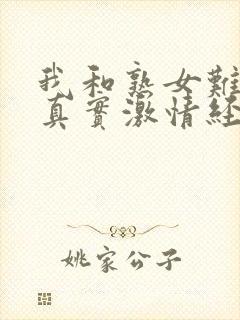 我和熟女難
真實激情經
姚家公子